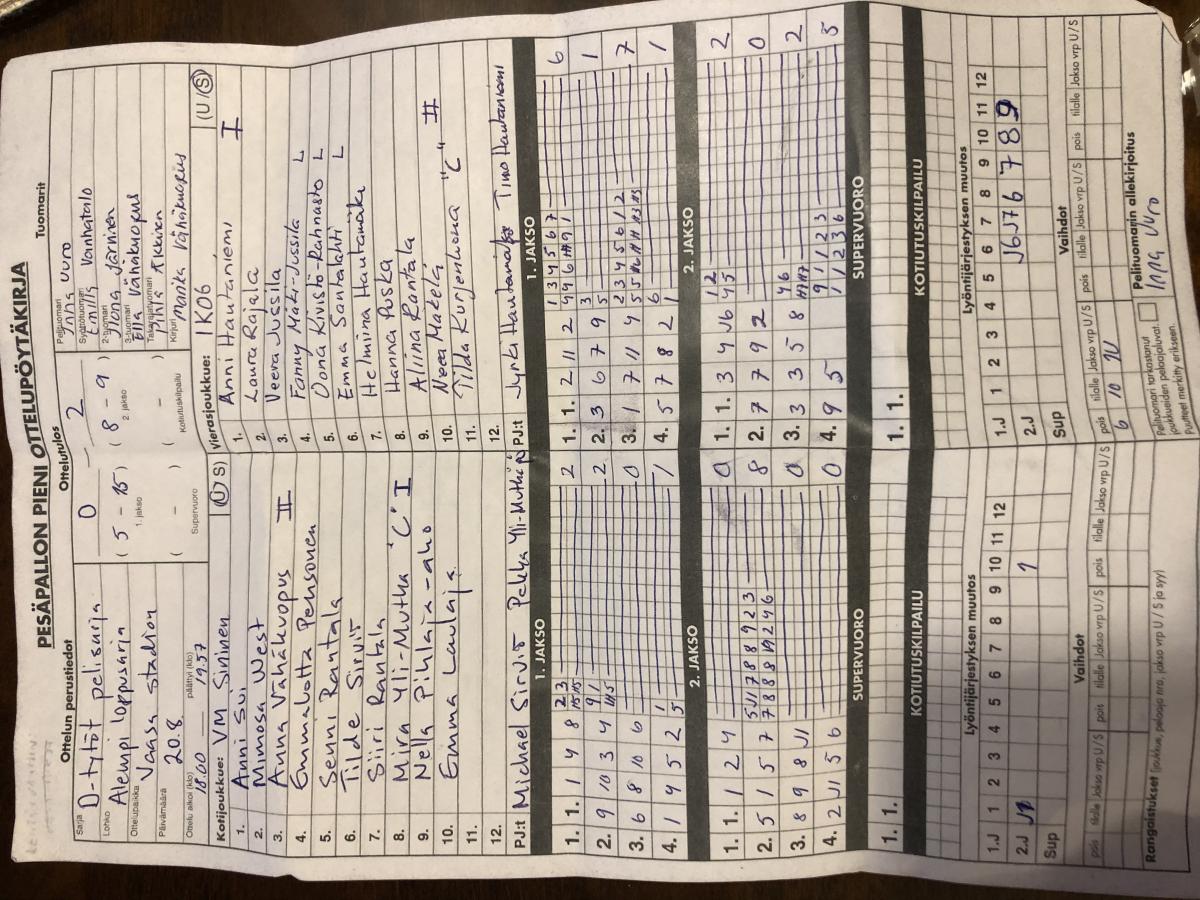 PESÄPALLON PIENI OTTELUPÖYTÄKIRJA
Ottelun perustiedot
Sarja
D-tytöt pelisarja
Lohko
Alempi loppusarja
Ottelupaikka
Vaasa stadion
Päivämäärä
20.8
Ottelu alkoi (klo) päättyi (klo)
18.00 19.57
Ottelutulos
0 – 2
( 5 – 15 ) ( 8 – 9 )
1. jakso 2. jakso
( – ) ( – )
Supervuoro Kotiutuskilpailu
Tuomarit
Pelituomari
Inna Uuro
Syöttötuomari
Emilia Vainhatalo
2-tuomari
Ilona Järvinen
3-tuomari
Ella Vähäkuopus
Takarajatuomari
Kirjuri
Marika Vähäkuopus
Kotijoukkue: VM Sininen (U S)
1. Anni Suvi
2. Mimosa West
3. Anna Vähäkuopus II
4. Emmalotta Pensonen
5. Senni Rantala
6. Tilde Sirviö
7. Siiri Rantala
8. Mira Yli-Mutka "C" I
9. Nella Pihlaja-aho
10. Emma Laulaja
11.
12.
PJ:t Michael Sirviö Pekka Yli-Mutka
Vierasjoukkue: IK06 (U S)
1. Anni Hautaniemi I
2. Laura Rajala
3. Veera Jussila
4. Fanny Mäki-Jussila L
5. Oona Kivistö-Rahnasto L
6. Emma Santalahti L
7. Helmiina Hautamäki
8. Hanna Puska
9. Aliina Rantala
10. Neea Mäkelä II
11. Tilda Kurjenluoma "C"
12.
PJ:t Jyrki Hautamäki Timo Hautaniemi
1. JAKSO
1. 1. 1 4 8 2 3 2
2. 9 10 3 4 9 1 2
3. 6 8 10 6 0
4. 1 4 5 2 1 1
5
1. JAKSO
1. 1. 2 11 2 1 3 4 5 6 7 6
2. 3 6 7 9 3 1
5
3. 1 7 11 4 2 3 4 5 6 1 2 7
4. 5 7 8 2 6 1
1
2. JAKSO
1. 1. 1 2 4 0
2. 5 1 5 7 5 J1 7 8 8 9 2 3 8
7 8 8 8 10 2 4 6
3. 8 9 8 J1 0
4. 2 J1 5 6 0
2. JAKSO
1. 1. 3 4 J6 1 2 2
4 5
2. 7 7 9 2 0
3. 3 3 5 8 4 6 2
4. 9 5 9 1 1 2 3 5
1 1 2 3 6
SUPERVUORO
1. 1.
SUPERVUORO
1. 1.
KOTIUTUSKILPAILU
KOTIUTUSKILPAILU
Lyöntijärjestyksen muutos
1.J 1 2 3 4 5 6 7 8 9 10 11 12
2.J J1 1
Sup
Lyöntijärjestyksen muutos
1.J 1 2 3 4 5 6 7 8 9 10 11 12
2.J J6 J7 6 7 8 9
Sup
Vaihdot
pois tilalle Jakso vrp U / S pois tilalle Jakso vrp U / S pois tilalle Jakso vrp U / S
Vaihdot
pois tilalle Jakso vrp U / S pois tilalle Jakso vrp U / S pois tilalle Jakso vrp U / S
6 10 IU
Rangaistukset (joukkue, pelaaja nro, jakso vrp U / S ja syy)
Pelituomari tarkastanut
joukkueiden pelaajaluvat.
Puutteet merkitty erikseen.
Pelituomarin allekirjoitus
Inna Uuro